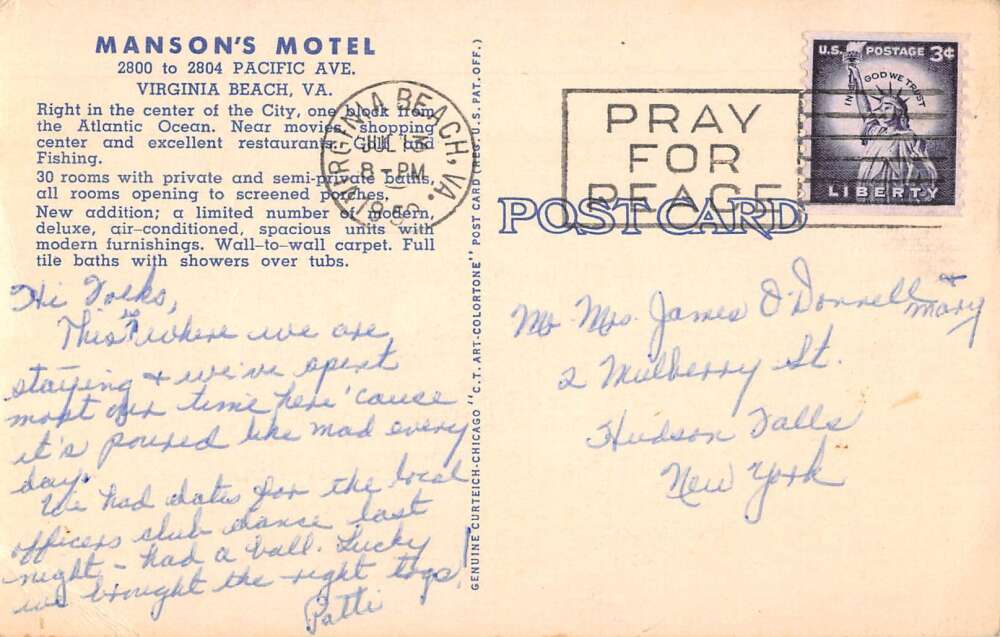 MANSON'S MOTEL
2800 to 2804 PACIFIC AVE.
VIRGINIA BEACH, VA.
Right in the center of the City, one block from
the Atlantic Ocean. Near movies, shopping
center and excellent restaurants. Golf and
Fishing.
30 rooms with private and semi-private baths,
all rooms opening to screened porches.
New addition; a limited number of modern,
deluxe, air-conditioned, spacious units with
modern furnishings. Wall-to-wall carpet. Full
tile baths with showers over tubs.
Hi Folks,
This is where we are
staying + we've spent
most our time here 'cause
it's poured like mad every
day.
We had dates for the local
officers club dance last
night - had a ball. Lucky
we brought the right togs!
Patti
GENUINE CURTEICH-CHICAGO "C.T. ART-COLORTONE" POST CARD (REG. U.S. PAT. OFF.)
VIRGINIA BEACH, VA.
JUL 13
8 - PM
PRAY
FOR
PEACE
U.S. POSTAGE 3¢
IN GOD WE TRUST
LIBERTY
POST CARD
Mr Mrs. James O'Donnell + Mary
2 Mulberry St.
Hudson Falls
New York